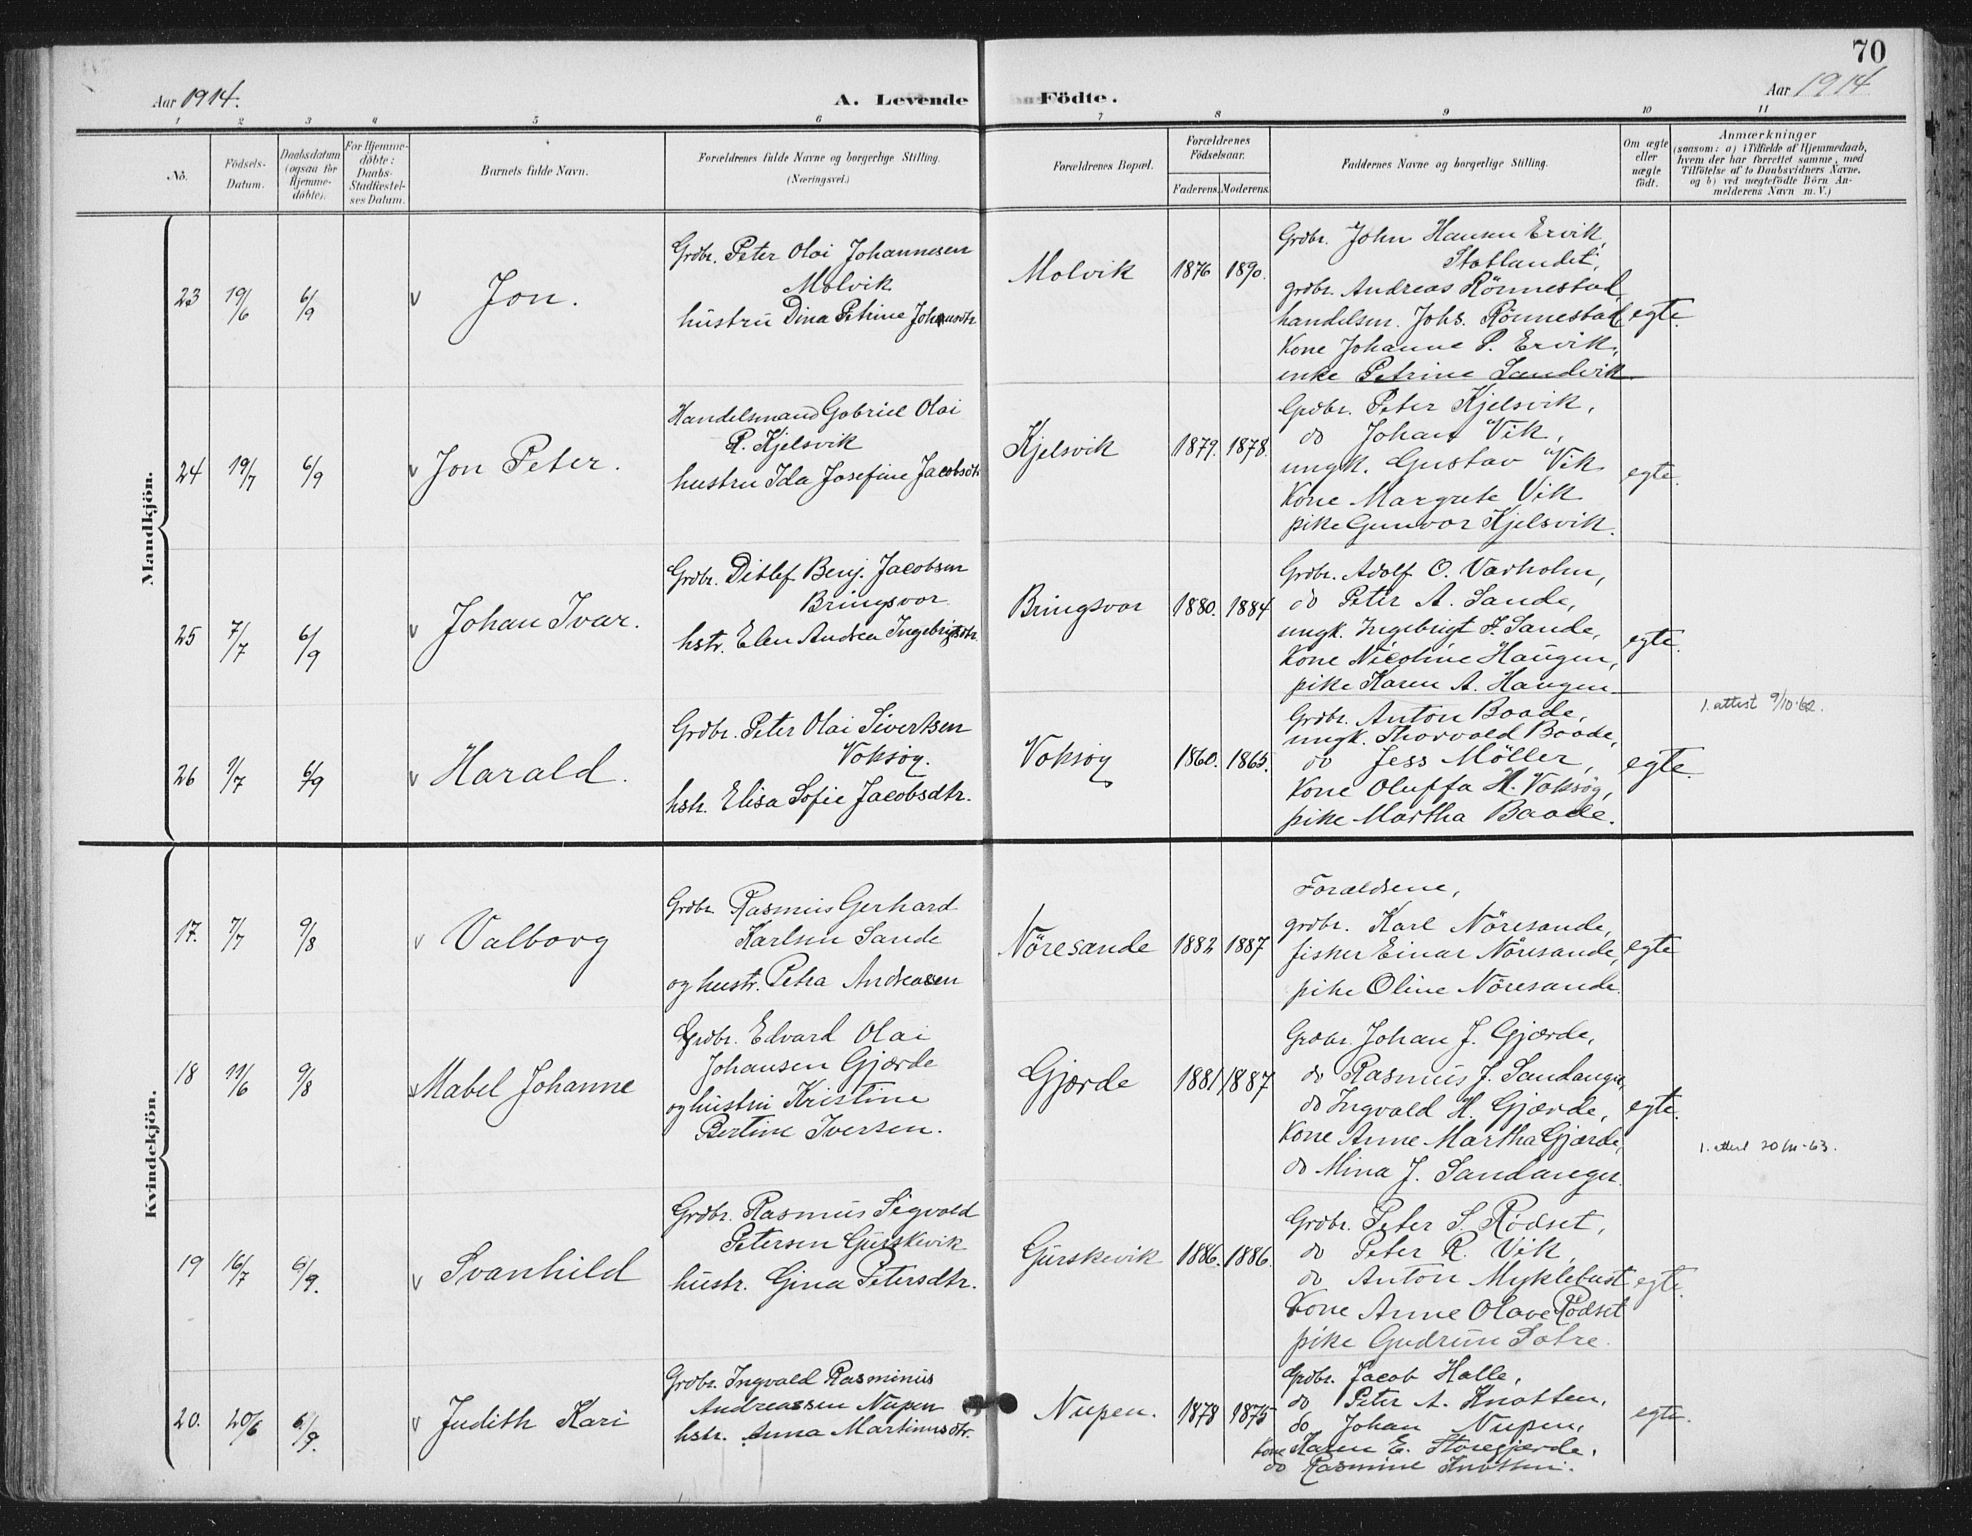 70
Aar 1914.
A. Levende Födte.
Aar 1914
1 2 3 4 5 6 7 8 9 10 11
No.
Födsels-Datum.
Daabsdatum (ogsaa for Hjemmedöbte).
For Hjemmedöbte: Daabs-Stadfæstelses Datum.
Barnets fulde Navn.
Forældrenes fulde Navne og borgerlige Stilling. (Næringsvei.)
Forældrenes Bopæl.
Forældrenes Födselsaar.
Faderens. Moderens.
Faddernes Navne og borgerlige Stilling.
Om ægte eller uægte födt.
Anmærkninger (saasom: a) i Tilfælde af Hjemmedaab, hvem der har forrettet samme, med Tilföielse af to Daabsvidners Navne, og b) ved uægtefödte Börn Anmelderens Navn m. V.)
Mandkjön.
23 19/6 6/9 v Jon.
Grdbr. Peter Olai Johannesen
Molvik
hustru Dina Petrine Johansdtr
Molvik 1876 1890.
Grdbr. John Hansen Ervik,
Statlandet,
grdbr. Andreas Rönnestad,
handelsm. Johs. Rönnestad
Kone Johanne P. Ervik,
enke Petrine Sandvik
egte.
24 19/7 6/9 v Jon Peter.
Handelsmand Gabriel Olai
R. Kjelsvik
hustru Ida Josefine Jacobsdtr
Kjelsvik 1879. 1878.
Grdbr. Peter Kjelsvik,
do Johan Vik,
ungk. Gustav Vik
Kone Margrete Vik
pike Gunvor Kjelsvik.
egte.
25 7/7 6/9 v Johan Ivar.
Grdbr. Ditlef Benj. Jacobsen
Bringsvor
hstr. Elen Andrea Ingebrigtsdtr.
Bringsvor 1880. 1884
Grdbr. Adolf O. Varholm,
do Peter A. Sande,
ungk. Ingebrigt F. Sande,
Kone Nicoline Haugen,
pike Karen A. Haugen
egte.
26 9/7 6/9 v Harald.
Grdbr. Peter Olai Sivertsen
Voksöy.
hstr. Elisa Sofie Jacobsdtr.
Voksöy 1860. 1865.
Grdbr. Anton Baade,
ungk. Thorvald Baade,
do Jess Möller,
Kone Oluffa H. Voksöy,
pike Martha Baade.
egte.
1. attest 9/10-62.
Kvindekjön.
17. 7/7 9/8 v Valborg
Grdbr. Rasmus Gerhard
Karlsen Sande
og hustr. Petra Andreasen
Nöresande 1882 1887
Forældrene,
grdbr. Karl Nöresande,
fisker Einar Nöresande,
pike Oline Nöresande.
egte
18 11/6 9/8 v Mabel Johanne
Grdbr. Edvard Olai
Johansen Gjærde
og hustru Kristine
Bertine Iversen.
Gjærde 1881 1887
Grdbr. Johan J. Gjærde,
do Rasmus J. Sandanger,
do Ingvald H. Gjærde,
Kone Anne Martha Gjærde,
do Mina J. Sandanger.
egte.
1. attest -63.
19 16/7 6/9. v Svanhild
Grdbr. Rasmus Sigvald
Petersen Gurskevik
hustr. Gina Petersdtr.
Gurskevik 1886. 1886.
Grdbr. Peter S. Rødset,
do Peter R. Vik,
do Anton Myklebust
Kone Anne Olave Rødset
pike Gudrun Sætre.
egte.
20. 20/6 6/9. v Judith Kari
Grdbr. Ingvald Rasminus
Andreassen Nupen
hstr. Anna Martinusdtr.
Nupen. 1878 1875
Grdbr. Jacob Halle,
do Peter A. Knotten,
do Johan Nupen,
Kone Karen E. Storegjærde,
do Rasmine Knotten.
egte.